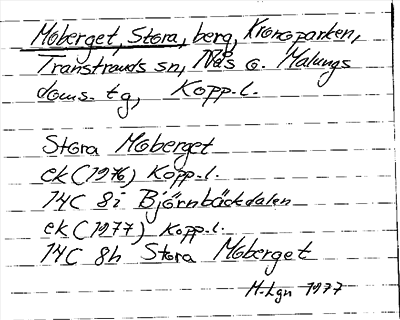 Moberget, Stora, berg, Kronoparken,
Transtrands sn, Nås o. Malungs
doms. tg, Kopp. l.
Stora Moberget
ek (1976) Kopp. l.
14C 8i Björnbäckdalen
ek (1977) Kopp. l.
14C 8h Stora Moberget
M-Lgn 1977